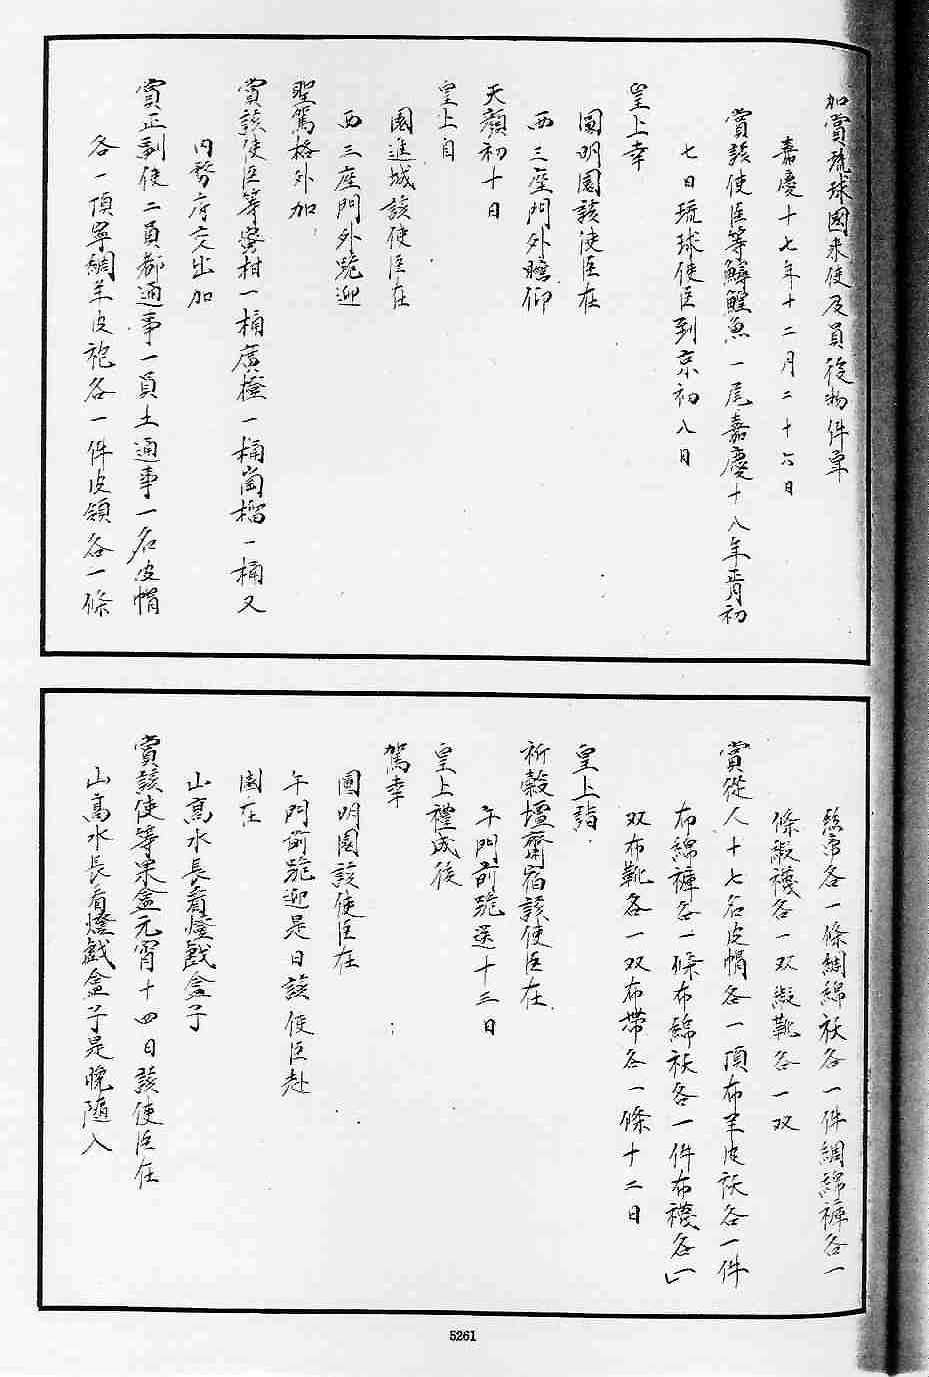 加賞琉球國來使及員從物件單
嘉慶十七年十二月二十六日
賞該使臣等鱘鰉魚一尾嘉慶十八年正月初
七日琉球使臣到京初八日
皇上幸
圓明園該使臣在
西三座門外瞻仰
天顏初十日
皇上自
園進城該使臣在
西三座門外跪迎
聖駕格外加
賞該使臣等蜜柑一桶廣橙一桶崗榴一桶又
內務府交出加
賞正副使二員都通事一員土通事一名皮帽
各一頂寧綢羊皮袍各一件皮領各一條
絲帶各一條綢綿襖各一件綢綿褲各一
條緞襪各一双緞靴各一双
賞從人十七名皮帽各一頂布羊皮襖各一件
布綿褲各一條布綿襖各一件布襪各一
双布靴各一双布帶各一條十二日
皇上詣
祈穀壇齋宿該使臣在
午門前跪送十三日
皇上禮成後
駕幸
圓明園該使臣在
午門前跪迎是日該使臣赴
園在
山高水長看燈戲盒子
賞該使等果盒元宵十四日該使臣在
山高水長看燈戲盒子是晚隨入
5261